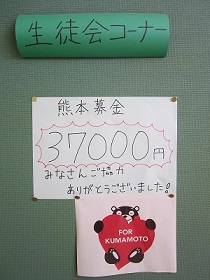 生徒会コーナー
熊本募金
37000円
みなさんご協力
ありがとうございました!
FOR
KUMAMOTO